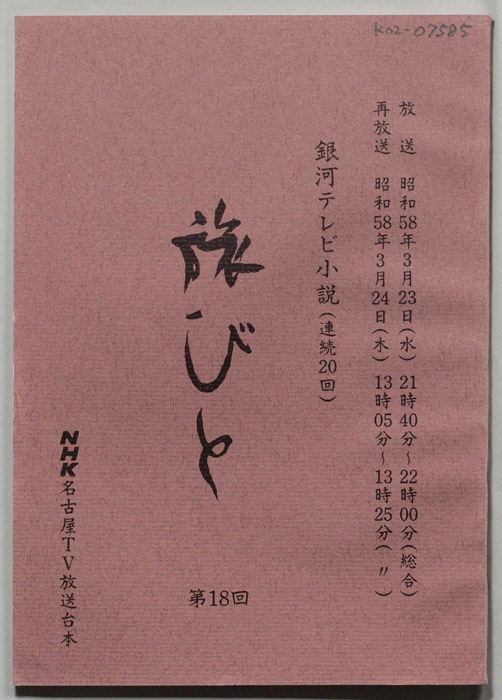 K02-07585
放送 昭和58年3月23日(水) 21時40分〜22時00分(総合)
再放送 昭和58年3月24日(木) 13時05分〜13時25分(〃)
銀河テレビ小説(連続20回)
旅びと
第18回
NHK名古屋TV放送台本